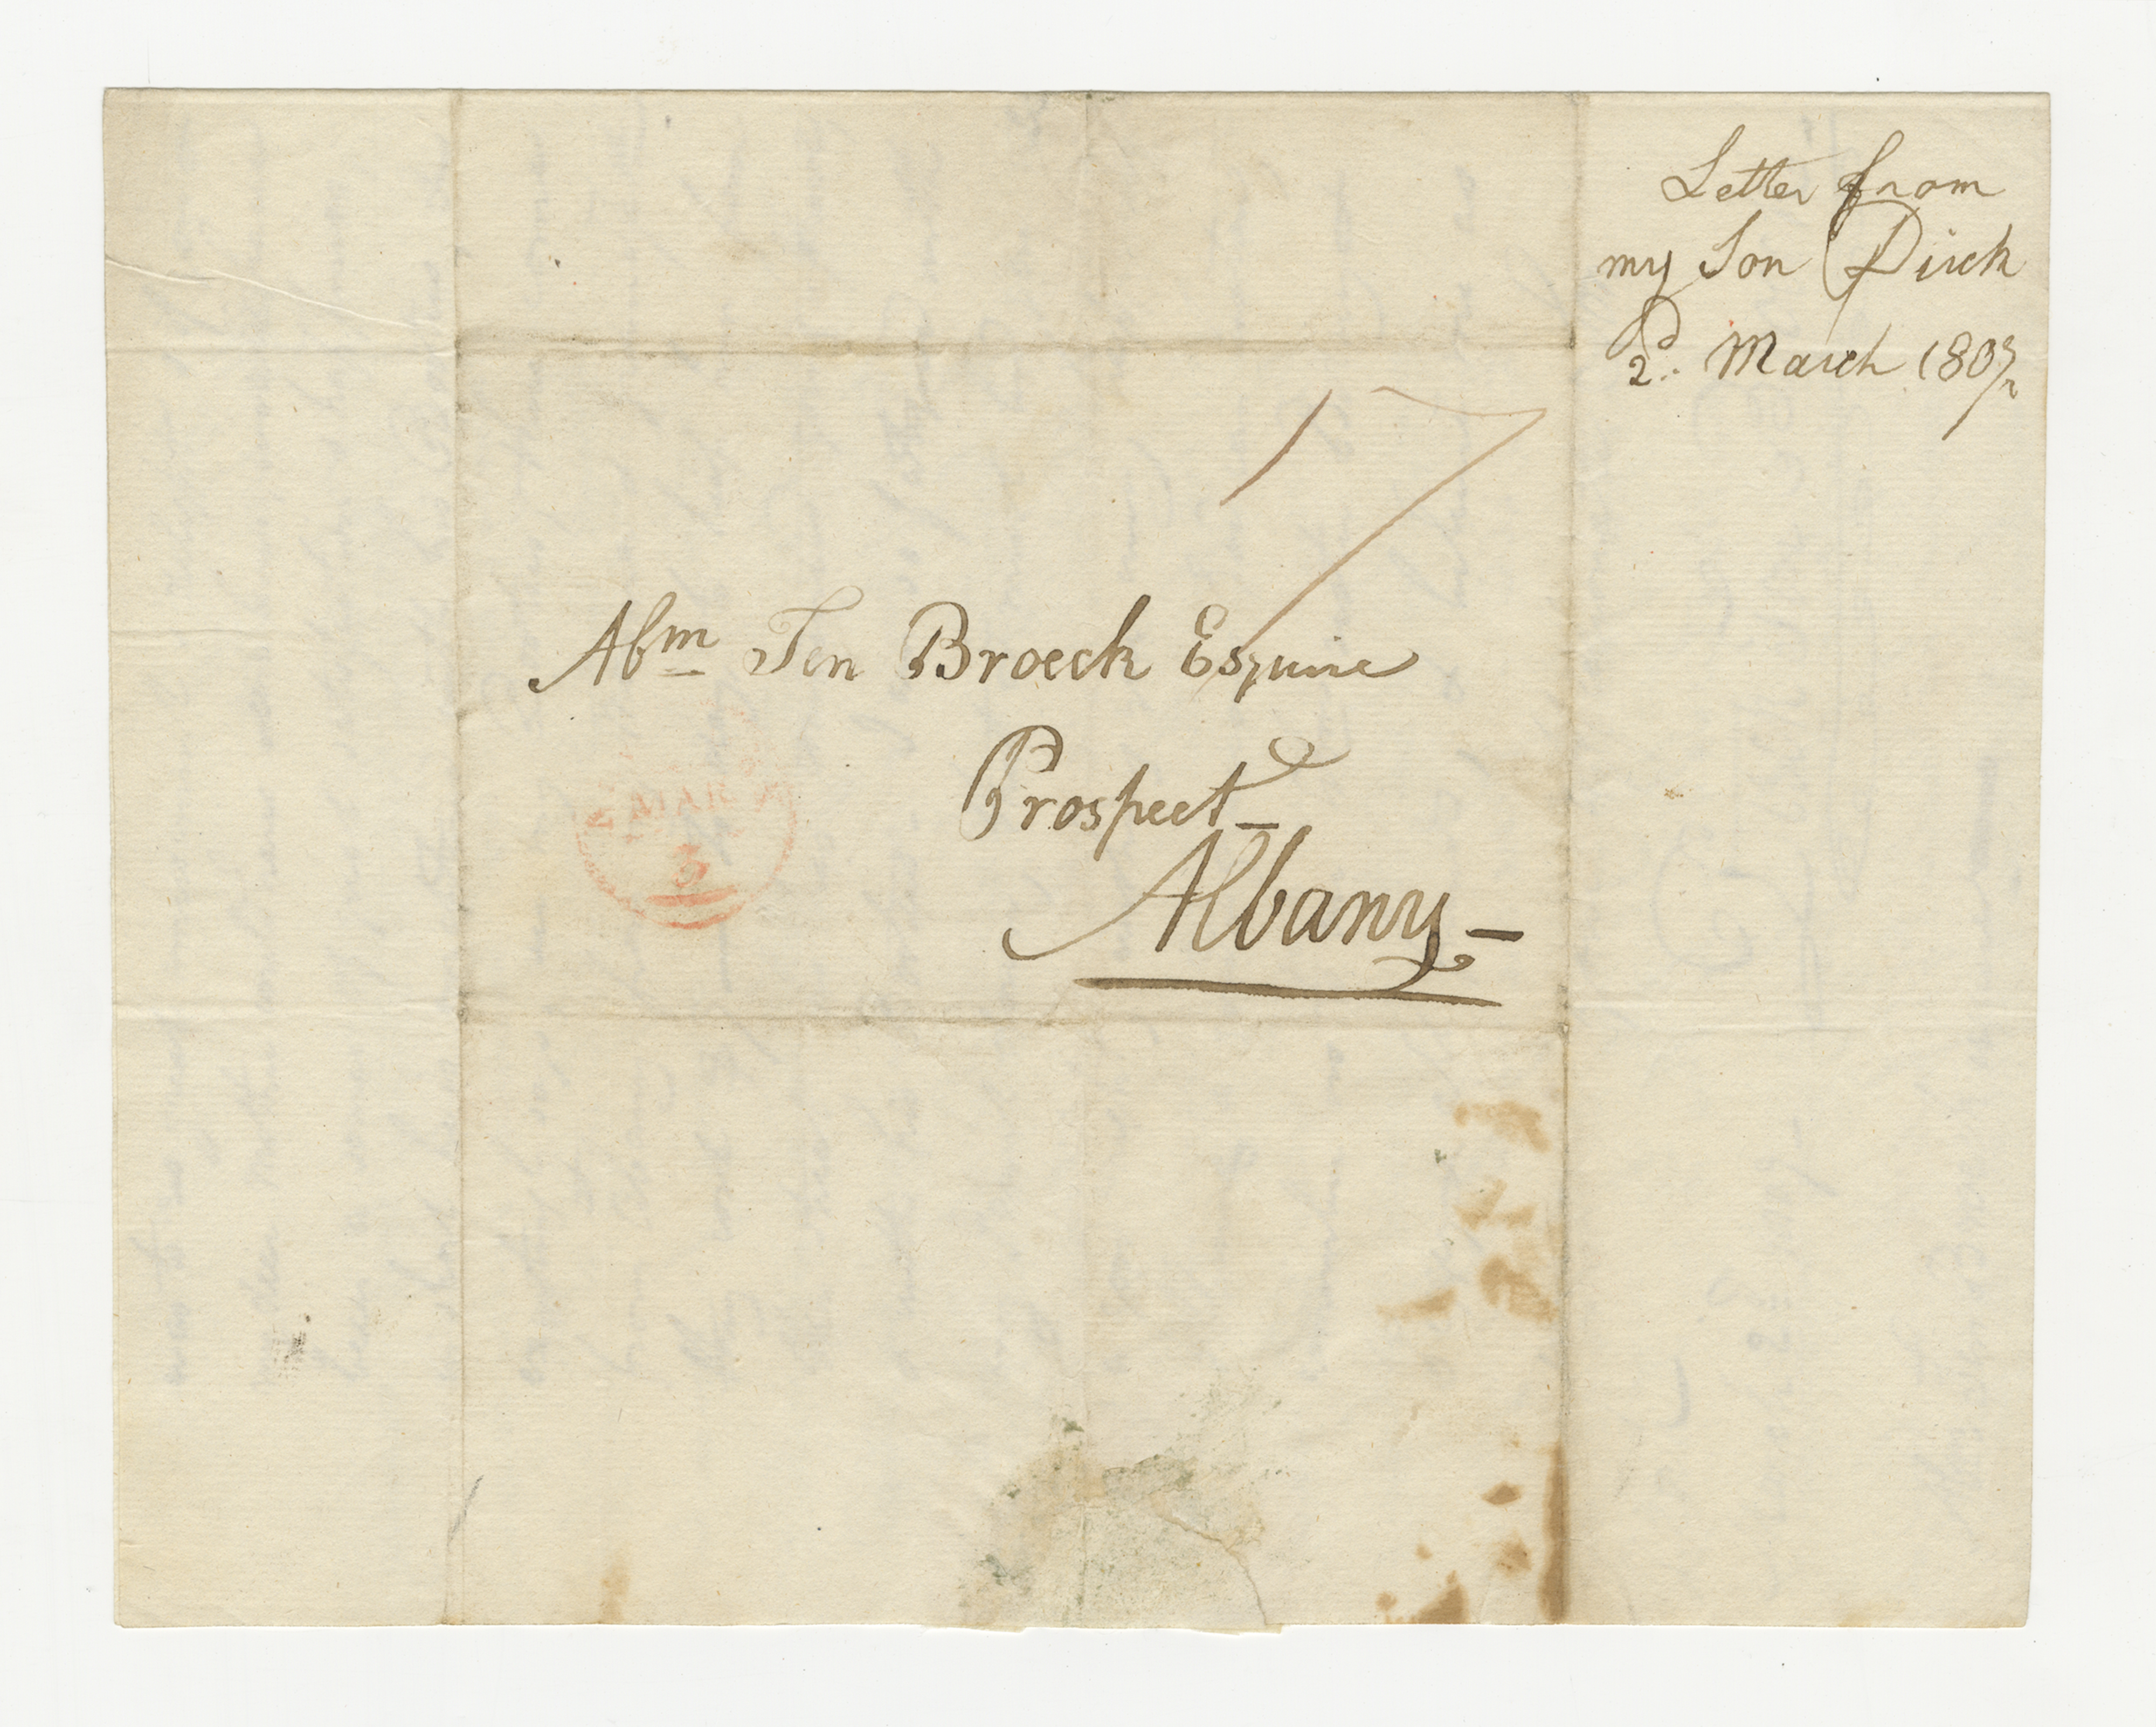 Letter from
my Son Dirck
2d. March 1807
17
Abm Ten Broeck Esquire
Prospect –
Albany –
MAR
3